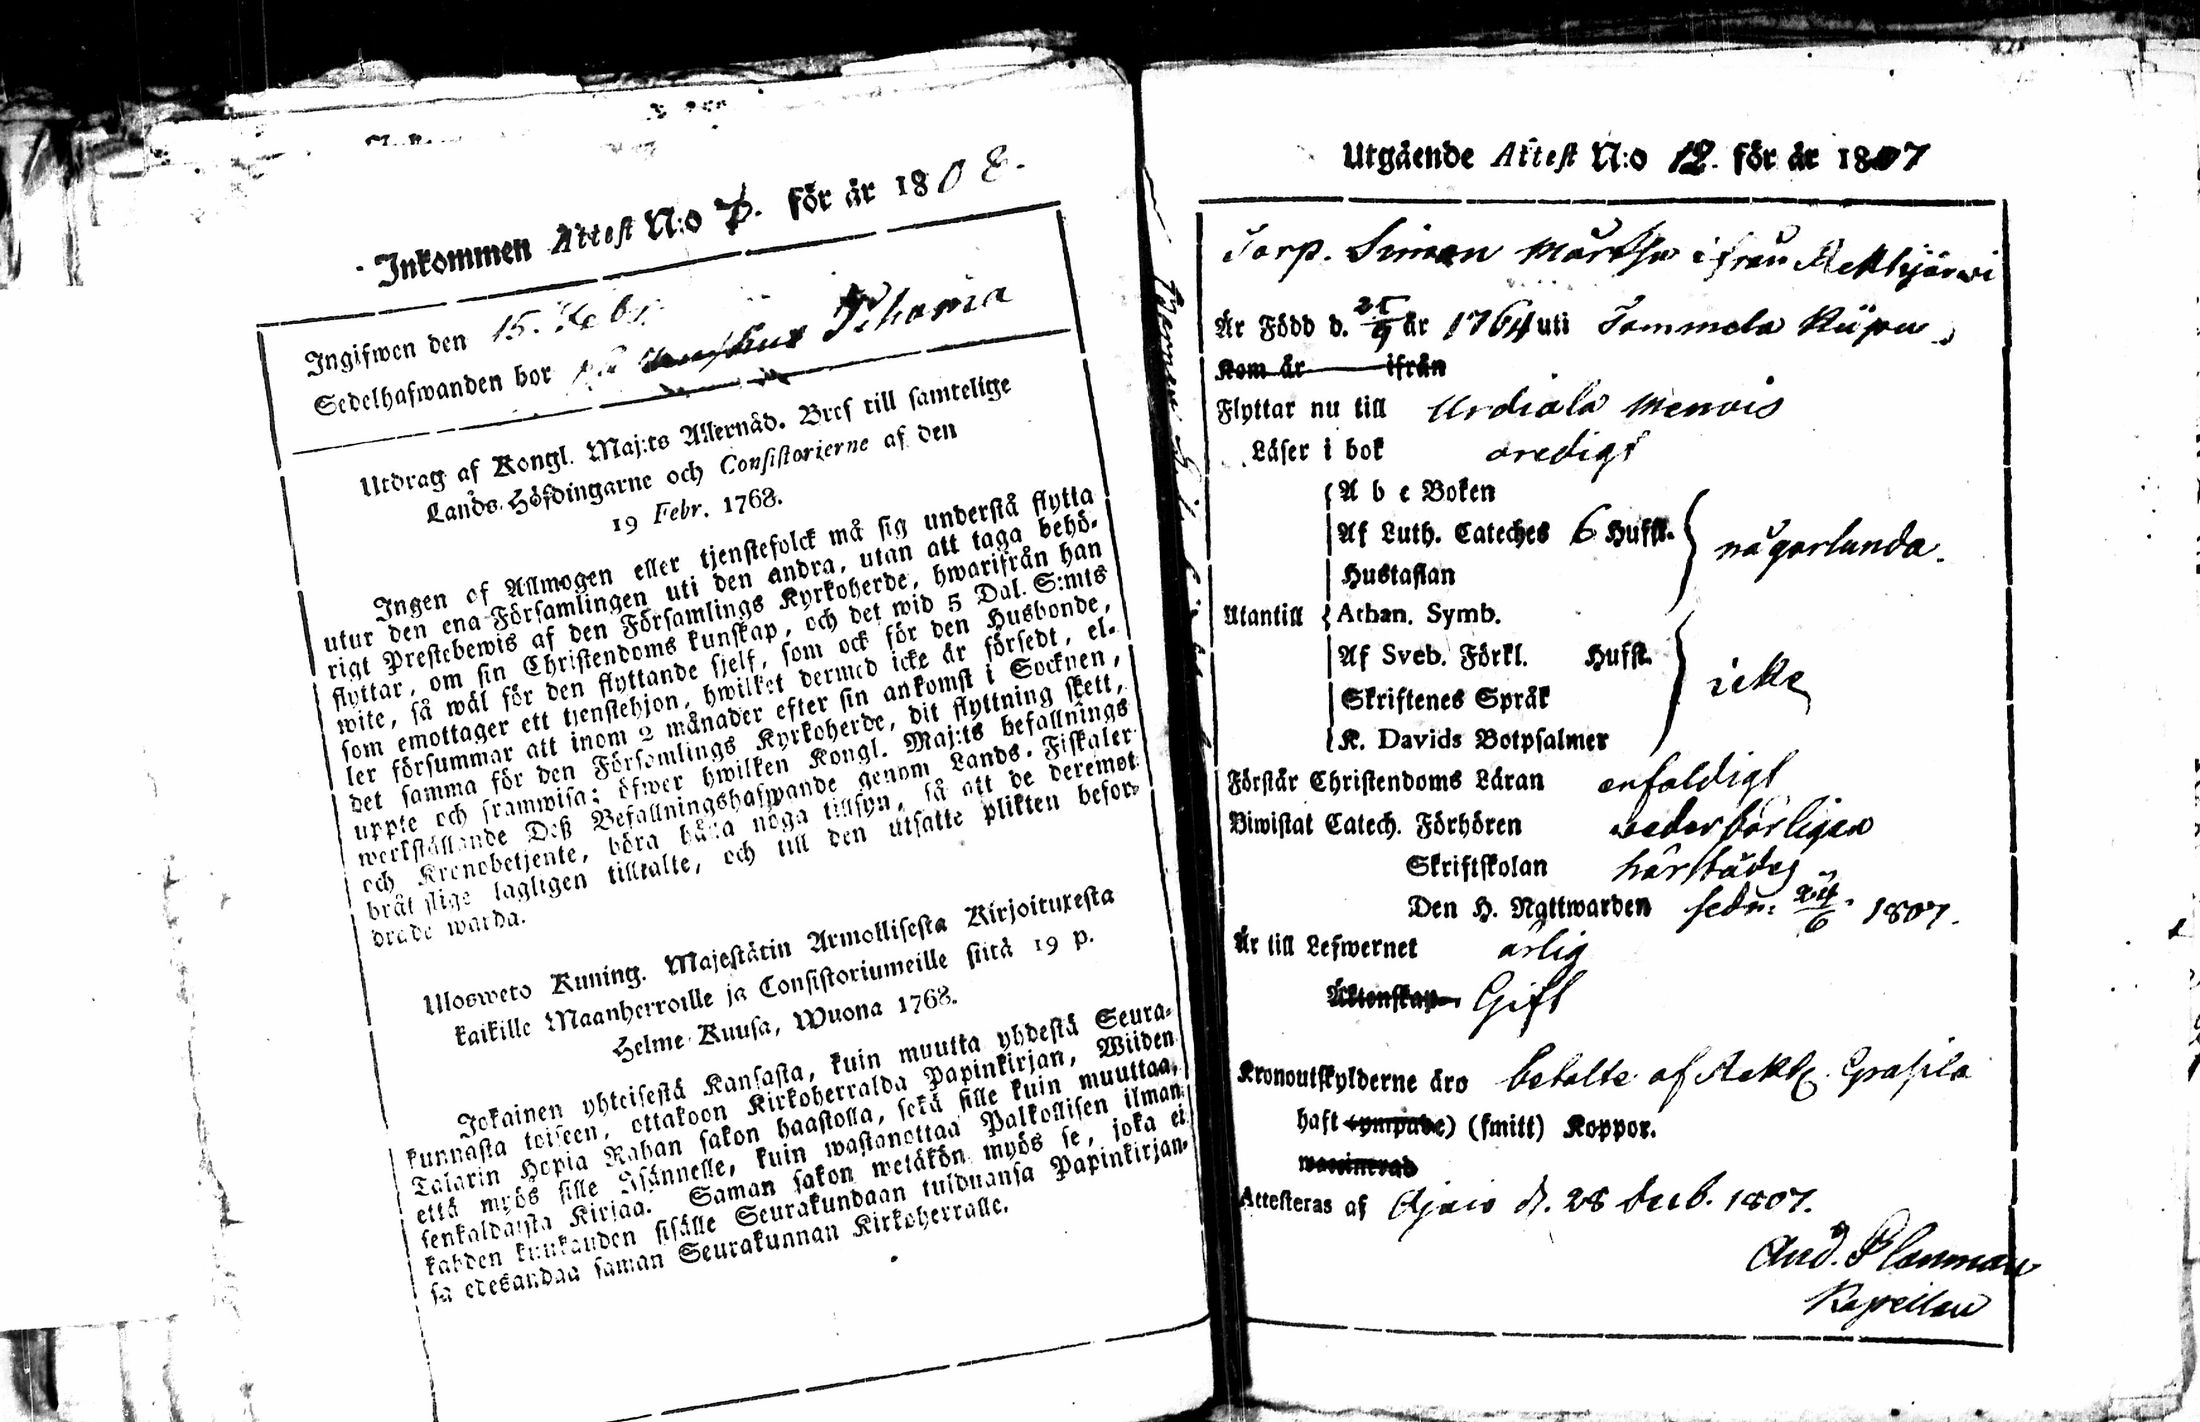 Inkommen Attest N:o 7. för år 1808.
Ingifwen den 15. Febr.
Sedelhafwanden bor
Utdrag af Kongl. Maj:ts Allernåd. Bref till samtelige
Lands-Höfdingarne och Consistorierne af den
19 Febr. 1768.
Ingen af Allmogen eller tjenstefolck må sig understå flytta
utur den ena Församlingen uti den andra, utan att taga behö-
rigt Prestebewis af den Församlings Kyrkoherde, hwarifrån han
flyttar, om sin Christendoms kunskap, och det wid 5 Dal. S:mts
wite, så wäl för den flyttande sjelf, som ock för den Husbonde,
som emottager ett tjenstehjon, hwilket dermed icke är försedt, el-
ler försummar att inom 2 månader efter sin ankomst i Socknen,
det samma för den Församlings Kyrkoherde, dit flyttning skett,
uppte och framwisa; öfwer hwilken Kongl. Maj:ts befallnings
werkställande Deß Befallningshafwande genom Lands-Fiskaler
och Kronobetjente, böra hålla noga tillsyn, så att de deremot
bråtslige lagligen tilltalte, och till den utsatte plikten befor-
drade warda.
Ulosweto Kuning. Majestätin Armollisesta Kirjoituxesta
kaikille Maanherroille ja Consistoriumeille siitä 19 p.
Helme-Kuusa, Wuona 1768.
Jokainen yhteisestä Kansasta, kuin muutta yhdestä Seura-
kunnasta toiseen, ottakoon Kirkoherralda Papinkirjan, Wiiden
Talarin Hopia Rahan sakon haastolla, sekä sille kuin muuttaa,
että myös sille Isännelle, kuin wastanottaa Palkollisen ilman
senkaldaista Kirjaa. Saman sakon wetäkön myös se, joka ei
kahden kuukauden sisälle Seurakundaan tulduansa Papinkirjan-
sa edesandaa saman Seurakunnan Kirkoherralle.
Utgående Attest N:o 12. för år 1807
Torp. Simon Mårtsn ifrån Rekkijärwi
Är Född d. 25/9 år 1764 uti Tammela Küpu
Kom år ifrån
Flyttar nu till Urdiala Menois
Läser i bok oredigt
A b c Boken
Af Luth. Cateches 6 Hufst.
Hustaflan
någorlunda.
Utantill
Athan. Symb.
Af Sveb. Förkl. Hufst.
Skriftenes Språk
K. Davids Botpsalmer
icke
Förstår Christendoms Läran enfaldigt
Biwistat Catech. Förhören wederbörligen
Skriftskolan härstädes
Den H. Nattwarden sedn. 24/6. 1807.
Är till Lefwernet ärlig
Äktenskap Gift
Kronoutskylderne äro betalte af Rekkj. Grasila
haft (ympade) (smitt) Koppor.
waccinerad
Attesteras af d. 28 Decb. 1807.
And. Planman
Kapellan